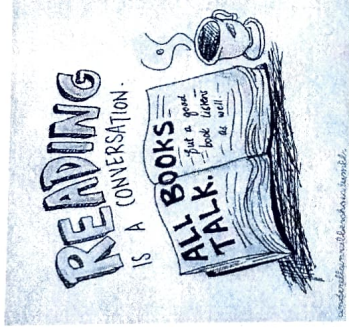 READING
IS A CONVERSATION.
ALL BOOKS
TALK.
But a good
book listens
as well.